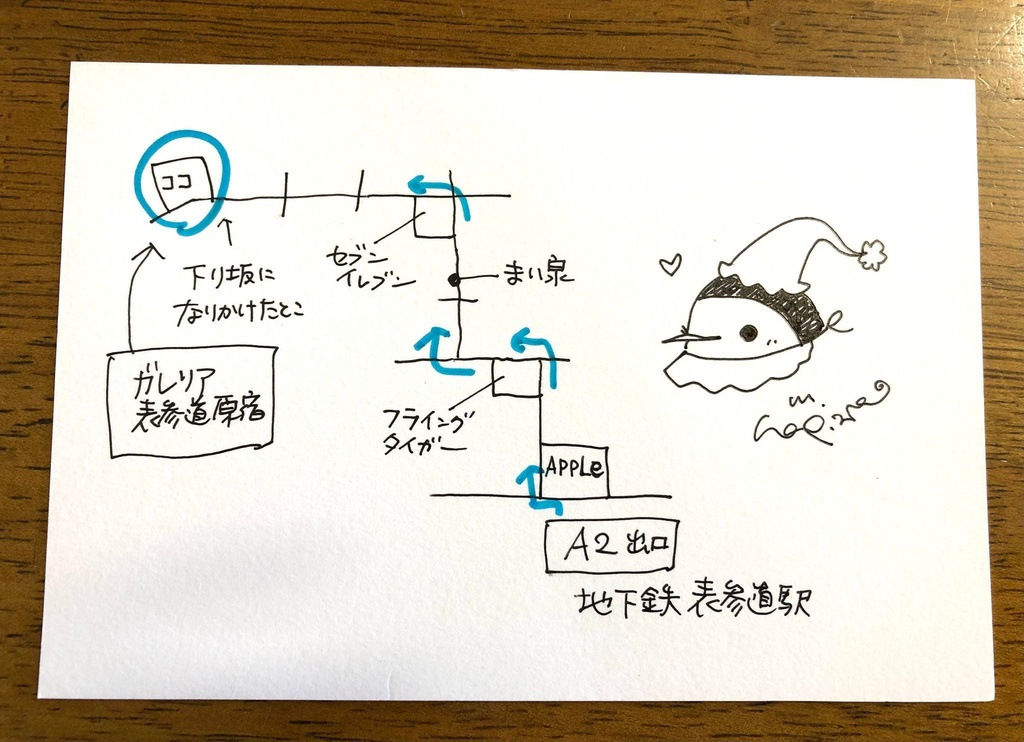 ココ
下り坂に
なりかけたとこ
ガレリア
表参道原宿
セブン
イレブン
まい泉
フライング
タイガー
APPLe
A2 出口
地下鉄 表参道駅
m.